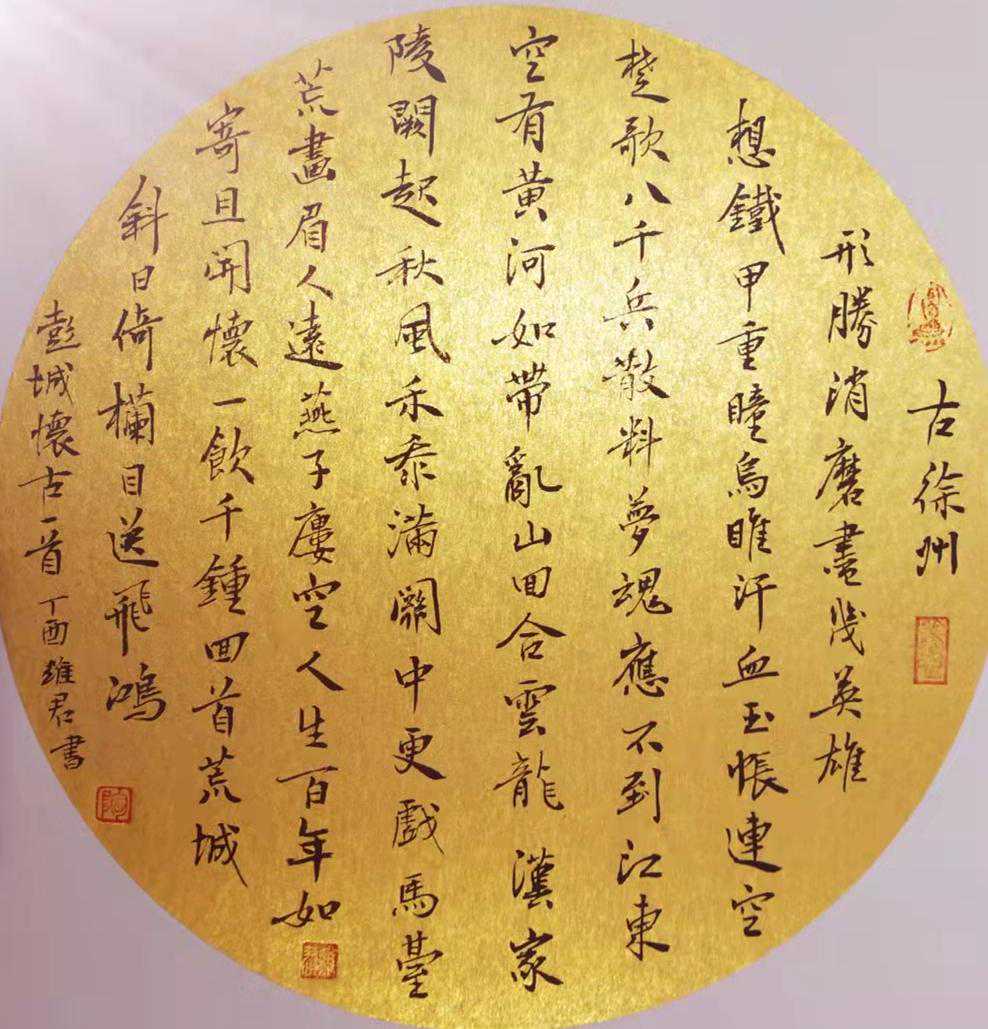 古徐州
形勝消磨盡幾英雄
想鐵甲重瞳烏睢汗血玉帳連空
楚歌八千兵散料夢魂應不到江東
空有黃河如帶亂山囬合雲龍漢家
陵闕起秋風禾黍滿關中更戲馬臺
荒畫眉人遠燕子廔空人生百年如
寄且開懷一飲千鍾囬首荒城
斜日倚欄目送飛鴻
彭城懷古一首 丁酉君書